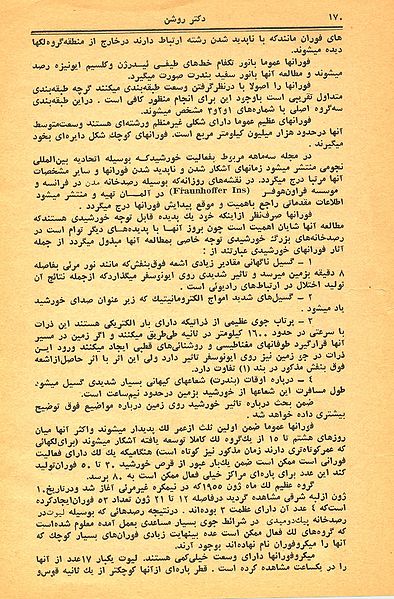 ۱۷۰ دکتر روشن
های فوران مانندکه با ناپدید شدن رشته ارتباط دارند درخارج از منطقه‌گروه‌لکها
دیده میشوند.
فورانها عموما بانور تکفام خط‌های طیفی ئیدرژن وکلسیم ایونیزه رصد
میشوند و مطالعه آنها بانور سفید بندرت صورت میگیرد.
فورانها را اصولا با درنظرگرفتن وسعت طبقه‌بندی میکنند گرچه طبقه‌بندی
متداول تقریبی است باوجود این برای انجام منظور کافی است . دراین طبقه‌بندی
سه‌گروه اصلی با شماره‌های ۱و۲و۳ مشخص میشوند.
فورانهای عظیم عموما دارای شکلی غیرمنظم ورشته‌ای هستند وسعت‌متوسط
آنها درحدود هزار میلیون کیلومتر مربع است. فورانهای کوچک شکل دایره‌ای بخود
میگیرند .
در مجله سه‌ماهه مربوط بفعالیت خورشیدکه بوسیله اتحادیه بین‌المللی
نجومی منتشر میشود زمانهای آشکار شدن و ناپدید شدن فورانها و سایر مشخصات
آنها مرتبا درج میگردد. در نقشه‌های روزانه‌که بوسیله رصدخانه مدن در فرانسه و
موسسه فراون‌هوفر (Fraunhoffer Ins) در آلمان تهیه و منتشر میشود
اطلاعات مقدماتی راجع باهمیت و موقع پیدایش فورانها درج میگردد .
فورانها صرف‌نظر ازاینکه خود یک پدیده قابل توجه خورشیدی هستندکه
مطالعه آنها شایان اهمیت است چون بروز آنها با پدیده‌های دیگر توام است در
رصدخانه‌های بزرگ خورشیدی توجه خاصی بمطالعه آنها مبذول میگردد از جمله
آثار فورانهای خورشیدی عبارتند از :
۱ – گسیل ناگهانی مقادیر زیادی اشعه فوق‌بنفش‌که مانند نور مرئی بفاصله
۸ دقیقه بزمین میرسد و تاثیر شدیدی روی ایونوسفر میگذاردکه ازجمله نتایج آن
تولید اختلال در ارتباط‌های رادیوئی است .
۲ – گسیل‌های شدید امواج الکترومانیتیک که زیر عنوان صدای خورشید
یاد میشود .
۳ – پرتاب جوی عظیمی از ذراتیکه دارای بار الکتریکی هستند این ذرات
با سرعتی در حدود ۱۶۰۰ کیلومتر در ثانیه طی‌طریق میکنند و اگر زمین در مسیر
آنها قرارگیرد طوفانهای مغناطیسی و روشنائی‌های قطبی ایجاد میکنند ورود این
ذرات در جو زمین نیز روی ایونوسفر تاثیر دارد ولی این اثر با اثر حاصل‌ازاشعه
فوق بنفش مذکور در بند (۱) تفاوت دارد.
۴ – درپاره اوقات (بندرت) شعاعهای کیهانی بسیار شدیدی گسیل میشود.
طول مسافرت این شعاعها از خورشید بزمین درحدود نیم‌ساعت است.
ضمن بحث درباره تاثیر خورشید روی زمین درباره مواضیع فوق توضیح
بیشتری داده خواهد شد .
فورانها عموما ضمن اولین ثلث ازعمر لک پدیدار میشوند واکثر آنها میان
روزهای هشتم تا ۱۵ از یک‌گروه لک کاملا توسعه یافته آشکار میشوند (برای‌لکهائی
که عمرکوتاه‌تری دارند زمان مذکور نیز کوتاه است) هنگامیکه یک لک دارای فعالیت
فورانی است ممکن است ضمن یک‌بار عبور از قرص خورشید ۳۰ تا ۵۰ فوران‌تولید
کند این عدد برای پاره‌ای مراکز خیلی فعال ممکن است به ۸۰ برسد.
گروه عظیم لک ماه ژون ۱۹۵۵که در نیمکره غیرمرئی آغاز شد ودرتاریخ۱۰
ژون ازلبه شرقی مشاهده گردید درفاصله ۱۲ تا ۲۱ ژون تعداد ۵۳ فوران‌ایجادکرده
است‌که ۴ عدد آن دارای عظمت ۲ بوده‌اند . درنتیجه رصدهائی که بوسیله لیوت‌در
رصدخانه پیک‌دومیدی در شرائط جوی بسیار مساعدی بعمل آمده معلوم شده‌است
که گروه‌های لک فعال ممکن است عده بینهایت زیادی فورانهای بسیار کوچک که
آنها را میکروفوران نام نهاده‌اند بوجود آرند.
میکروفورانها دارای وسعت خیلی‌کمی هستند. لیوت یکبار ۱۷عدد از آنها
را در یکساعت مشاهده کرده است . قطر پاره‌ای ازآنها کوچکتر از یک ثانیه قوس‌و